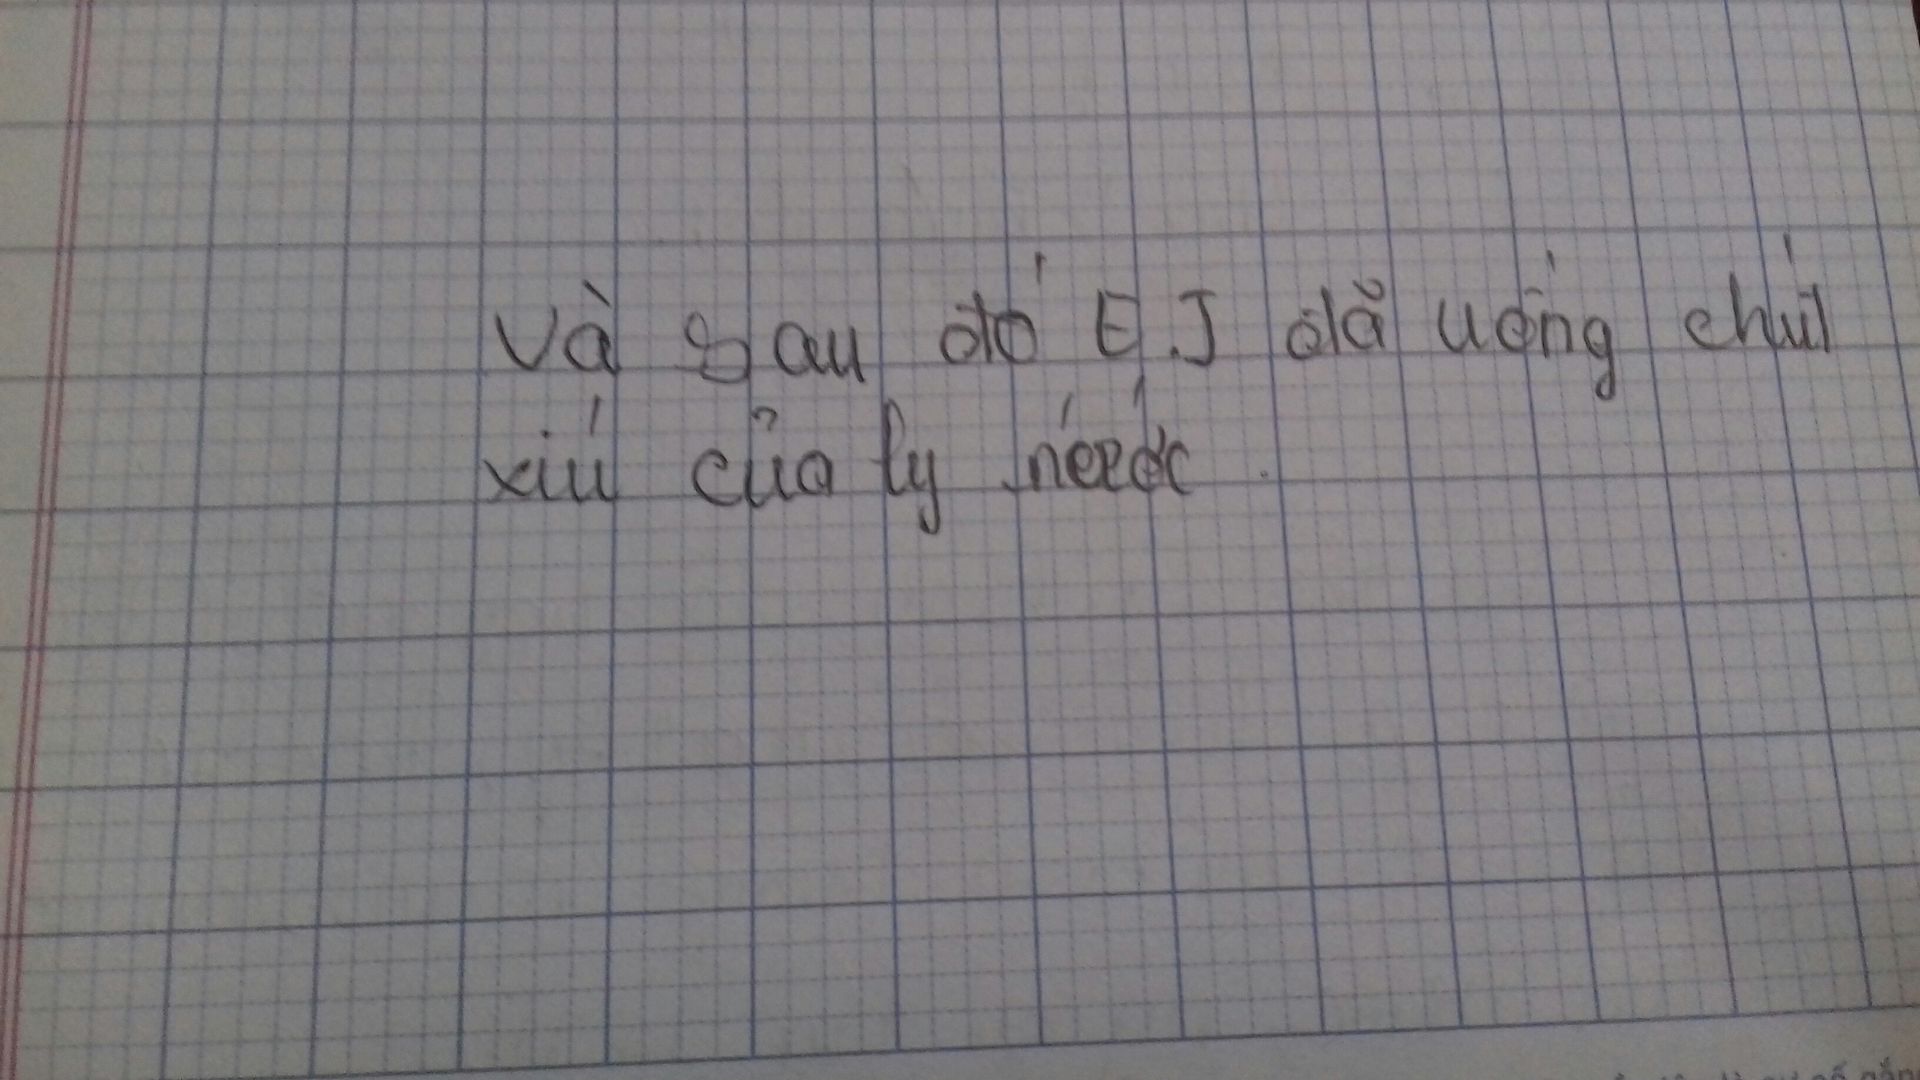 Và sau đó E.J đã uống chút
xíu của ly nước.